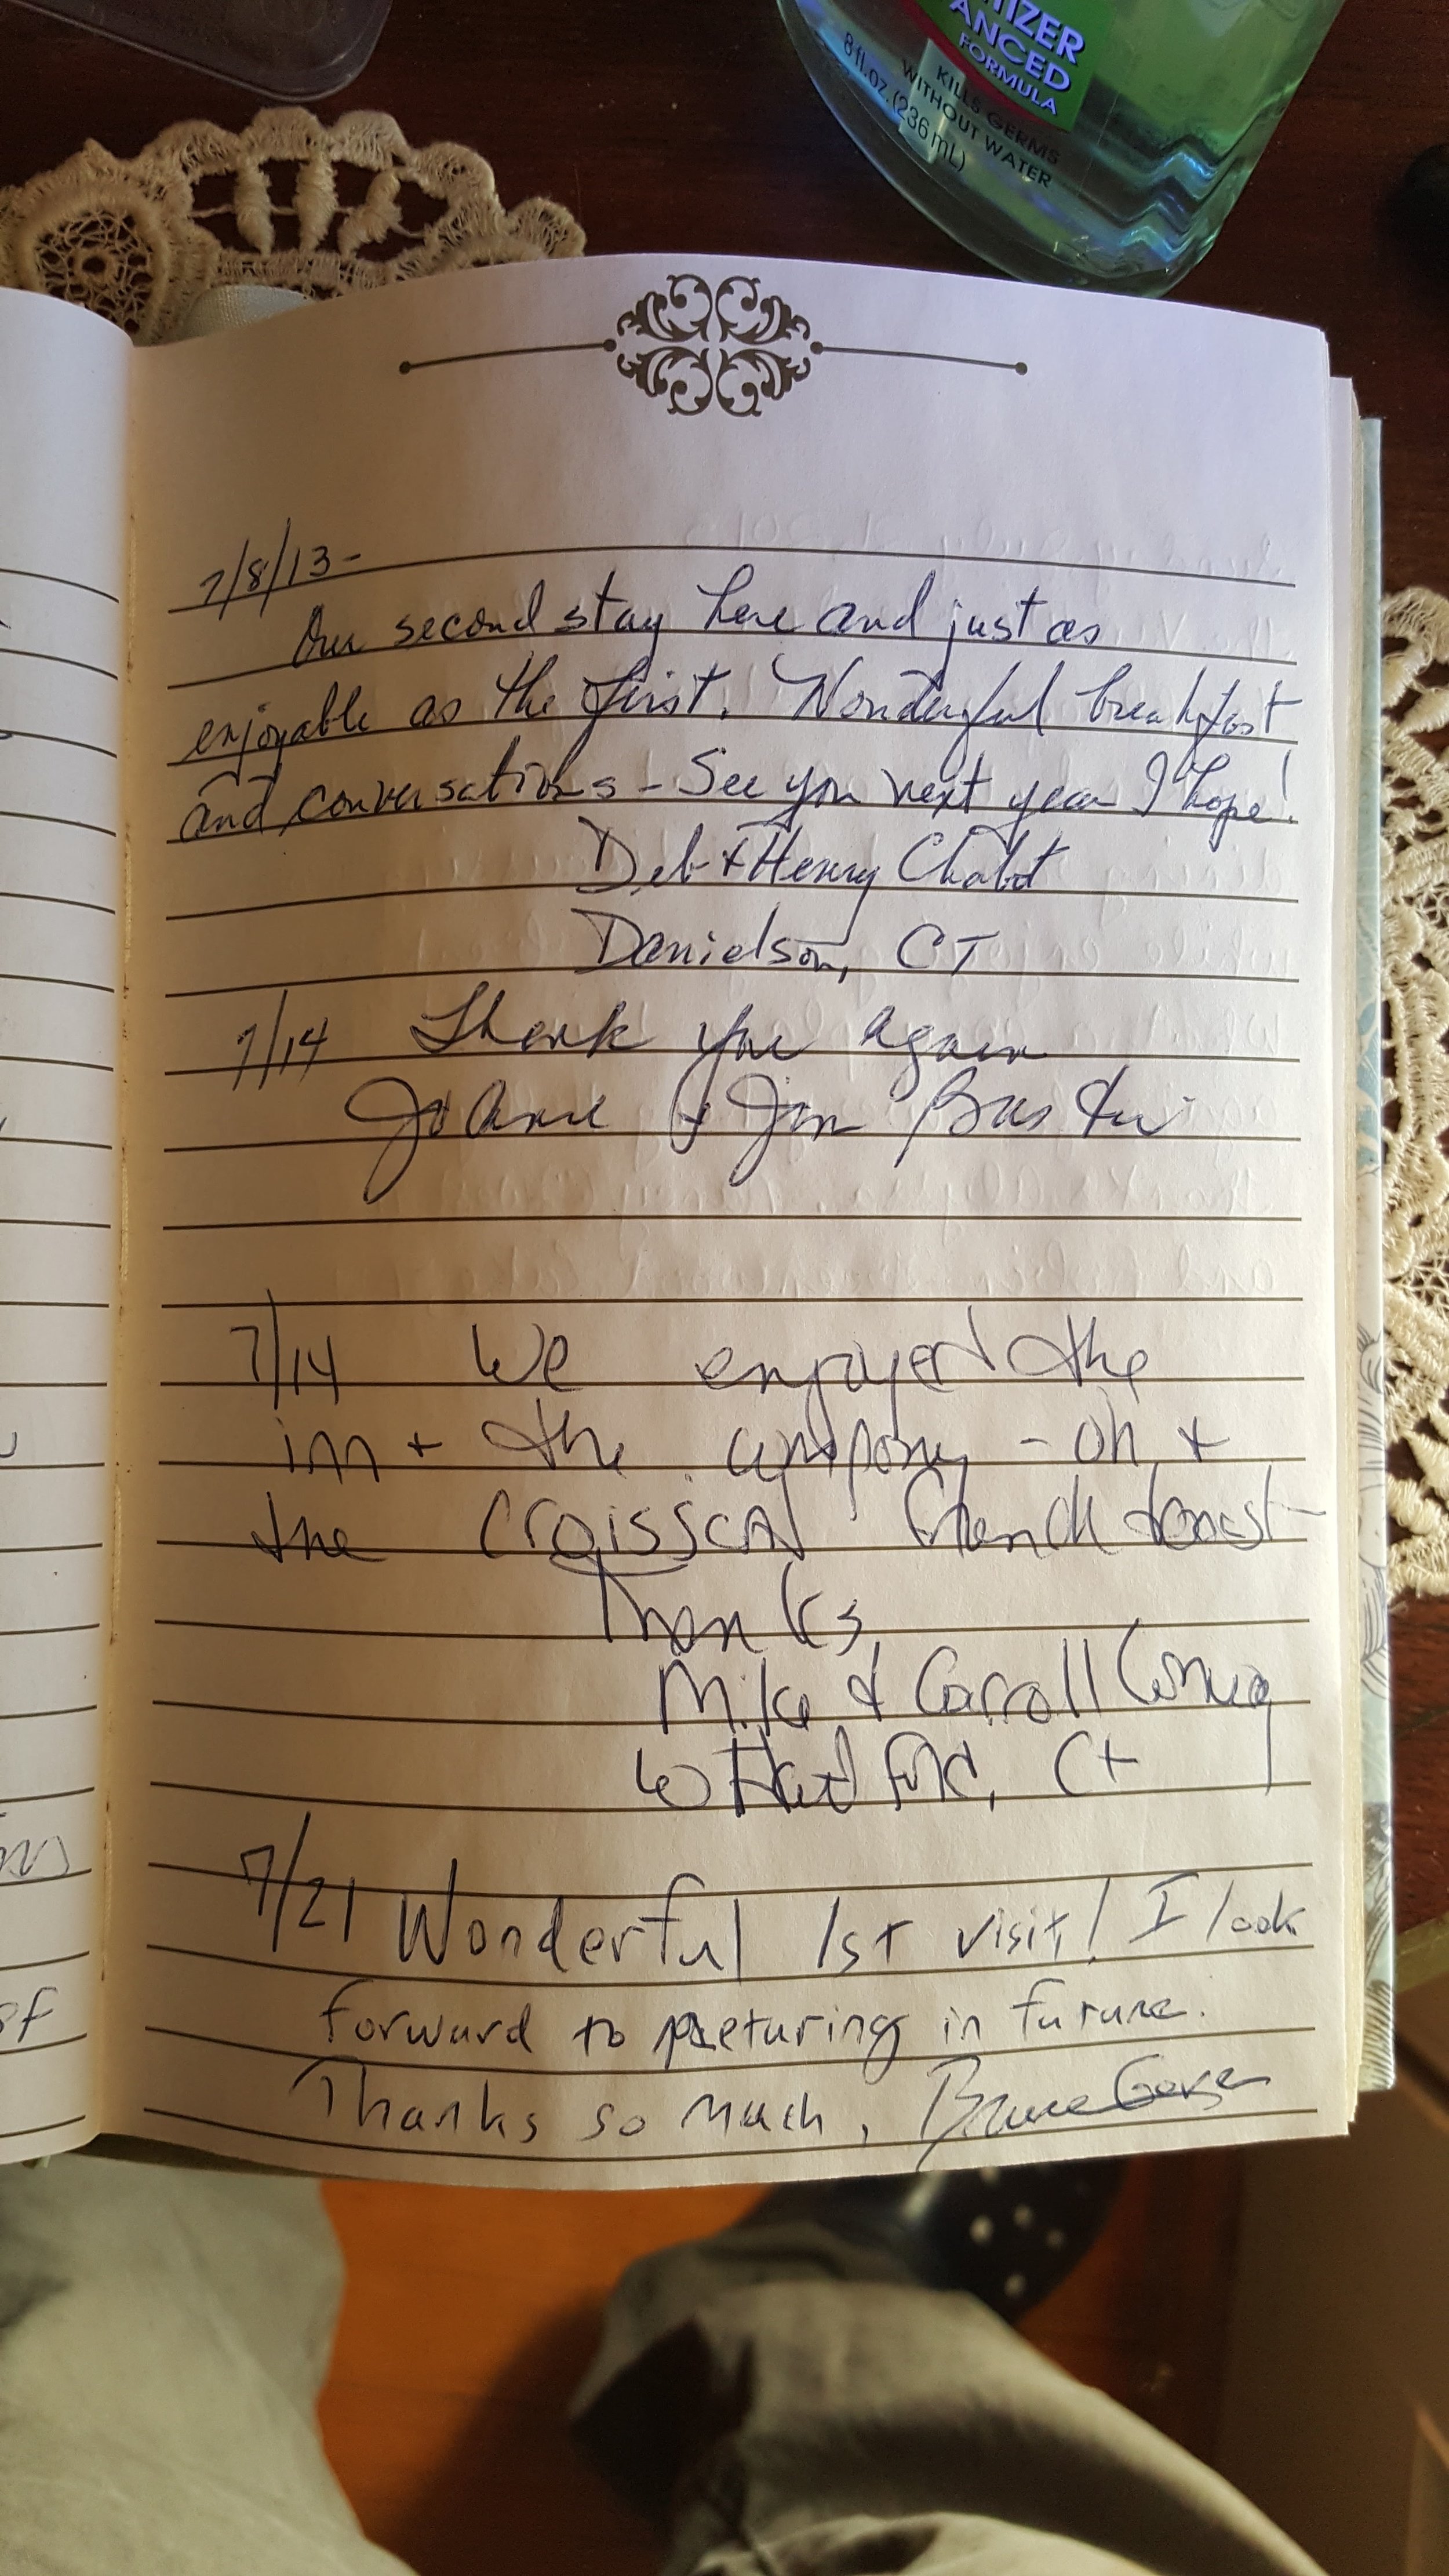 MIZER
ANCED
FORMULA
KILLS GERMS
WITHOUT WATER
8 fl. oz. (236 mL)
7/8/13-
Our second stay here and just as
enjoyable as the first. Wonderful breakfast
and conversations - See you next year I hope!
Deb + Henry Chabot
Danielson, CT
7/14 Thank you again
JoAnne & Jim
7/14 We enjoyed the
inn + the company - oh +
the croissant french toast
Thanks
Mike & Carroll
W Hartford, Ct
7/21 Wonderful 1st visit! I look
forward to returing in future.
Thanks so much, Bruce
of